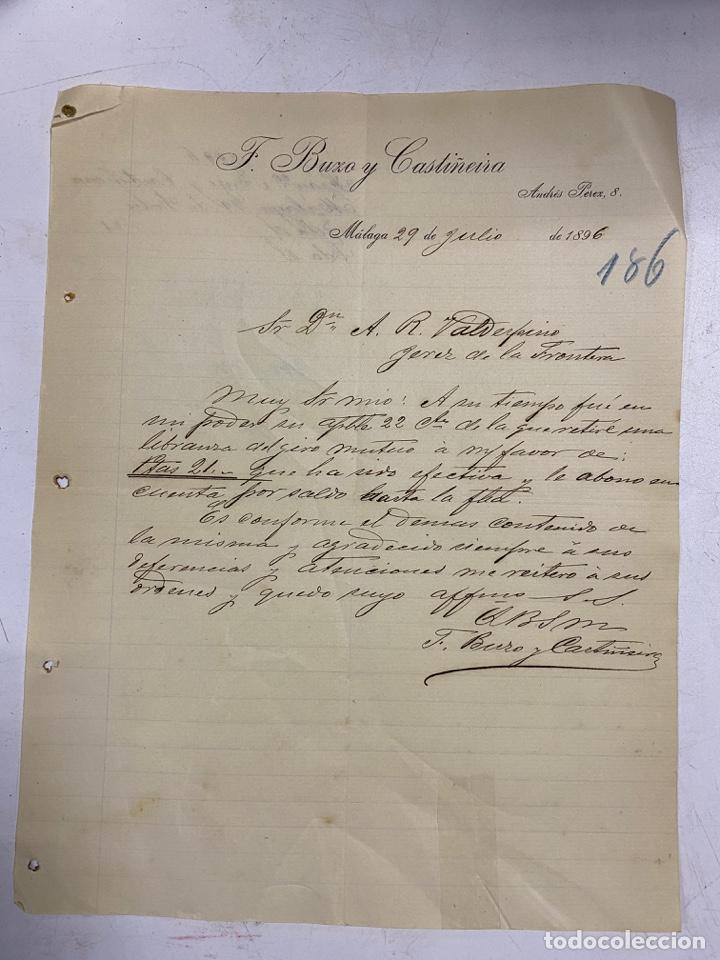 F. Buzo y Castiñeira
Andrés Pérez, 8.
Málaga 29 de Julio de 1896
186
Sr Dn A. R. Valdespino
Jerez de la Frontera
Muy Sr mio: A su tiempo fué en
mi poder su aptble 22 Cte de la que retiré una
libranza del giro mutuo á m/ favor de:
Ptas 21.- que ha sido efectiva y le abono en
cuenta por saldo hasta la fha.
Es conforme el demas contenido de
la misma y agradecido siempre á sus
deferencias y atenciones me reitero á sus
órdenes y quedo suyo affmo S.S.
Q B S M
F. Buzo y Castiñeira
todocoleccion
todocoleccion.net